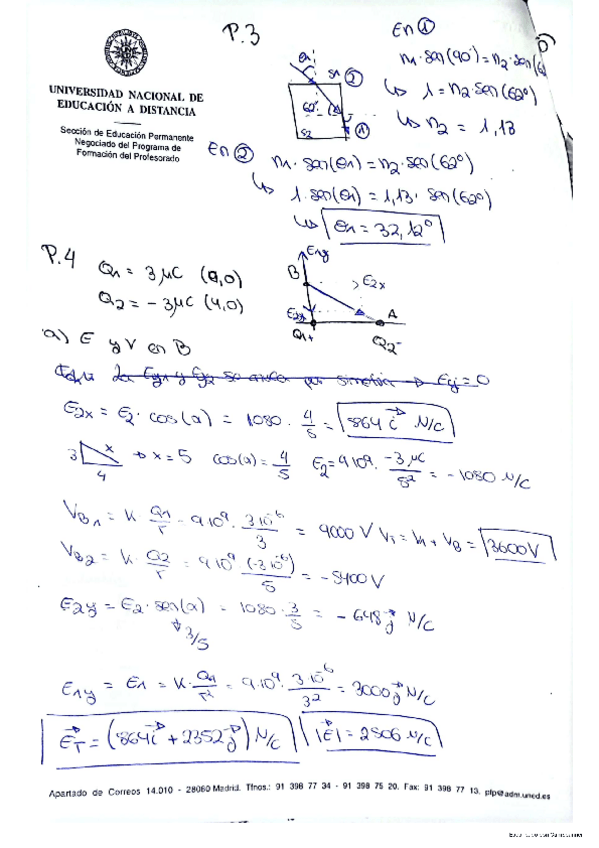 P.3
En ①
n1·sen(90°)=n2·sen(6
↳ 1=n2·sen(62°)
↳ n2 = 1,13
UNIVERSIDAD NACIONAL DE
EDUCACIÓN A DISTANCIA
Sección de Educación Permanente
Negociado del Programa de
Formación del Profesorado
θ1
S1 ②
62°
S2
①
En ② n1·sen(θ1)=n2·sen(62°)
↳ 1·sen(θ1)=1,13·sen(62°)
↳ θ1=32,12°
P.4
Q1= 3μC (0,0)
Q2=-3μC (4,0)
E1y
B
E2x
A
Q1+
Q2-
a) E y V en B
E1y y E2y se anulan por simetría → Ey=0
E2x = E2·cos(a) = 1080·4/5 = 864 i⃗ N/C
3 x → x=5 cos(a)=4/5 E2=9·10⁹·-3μC/5² = -1080 N/C
4
VB1= K·Q1/r = 9·10⁹·3·10⁻⁶/3 = 9000 V VT=V1+VB=3600V
VB2= K·Q2/r = 9·10⁹·(-3·10⁻⁶)/5 = -5400V
E2y = E2·sen(a) = 1080·3/5 = -648 j⃗ N/C
↓ 3/5
E1y = E1= K·Q1/r² = 9·10⁹·3·10⁻⁶/3² = 3000 j⃗ N/C
E⃗T=(864i⃗+2352j⃗) N/C |E⃗|=2506 N/C
Apartado de Correos 14.010 - 28060 Madrid. Tfnos.: 91 398 77 34 - 91 398 75 20. Fax: 91 398 77 13. pfp@adm.uned.es